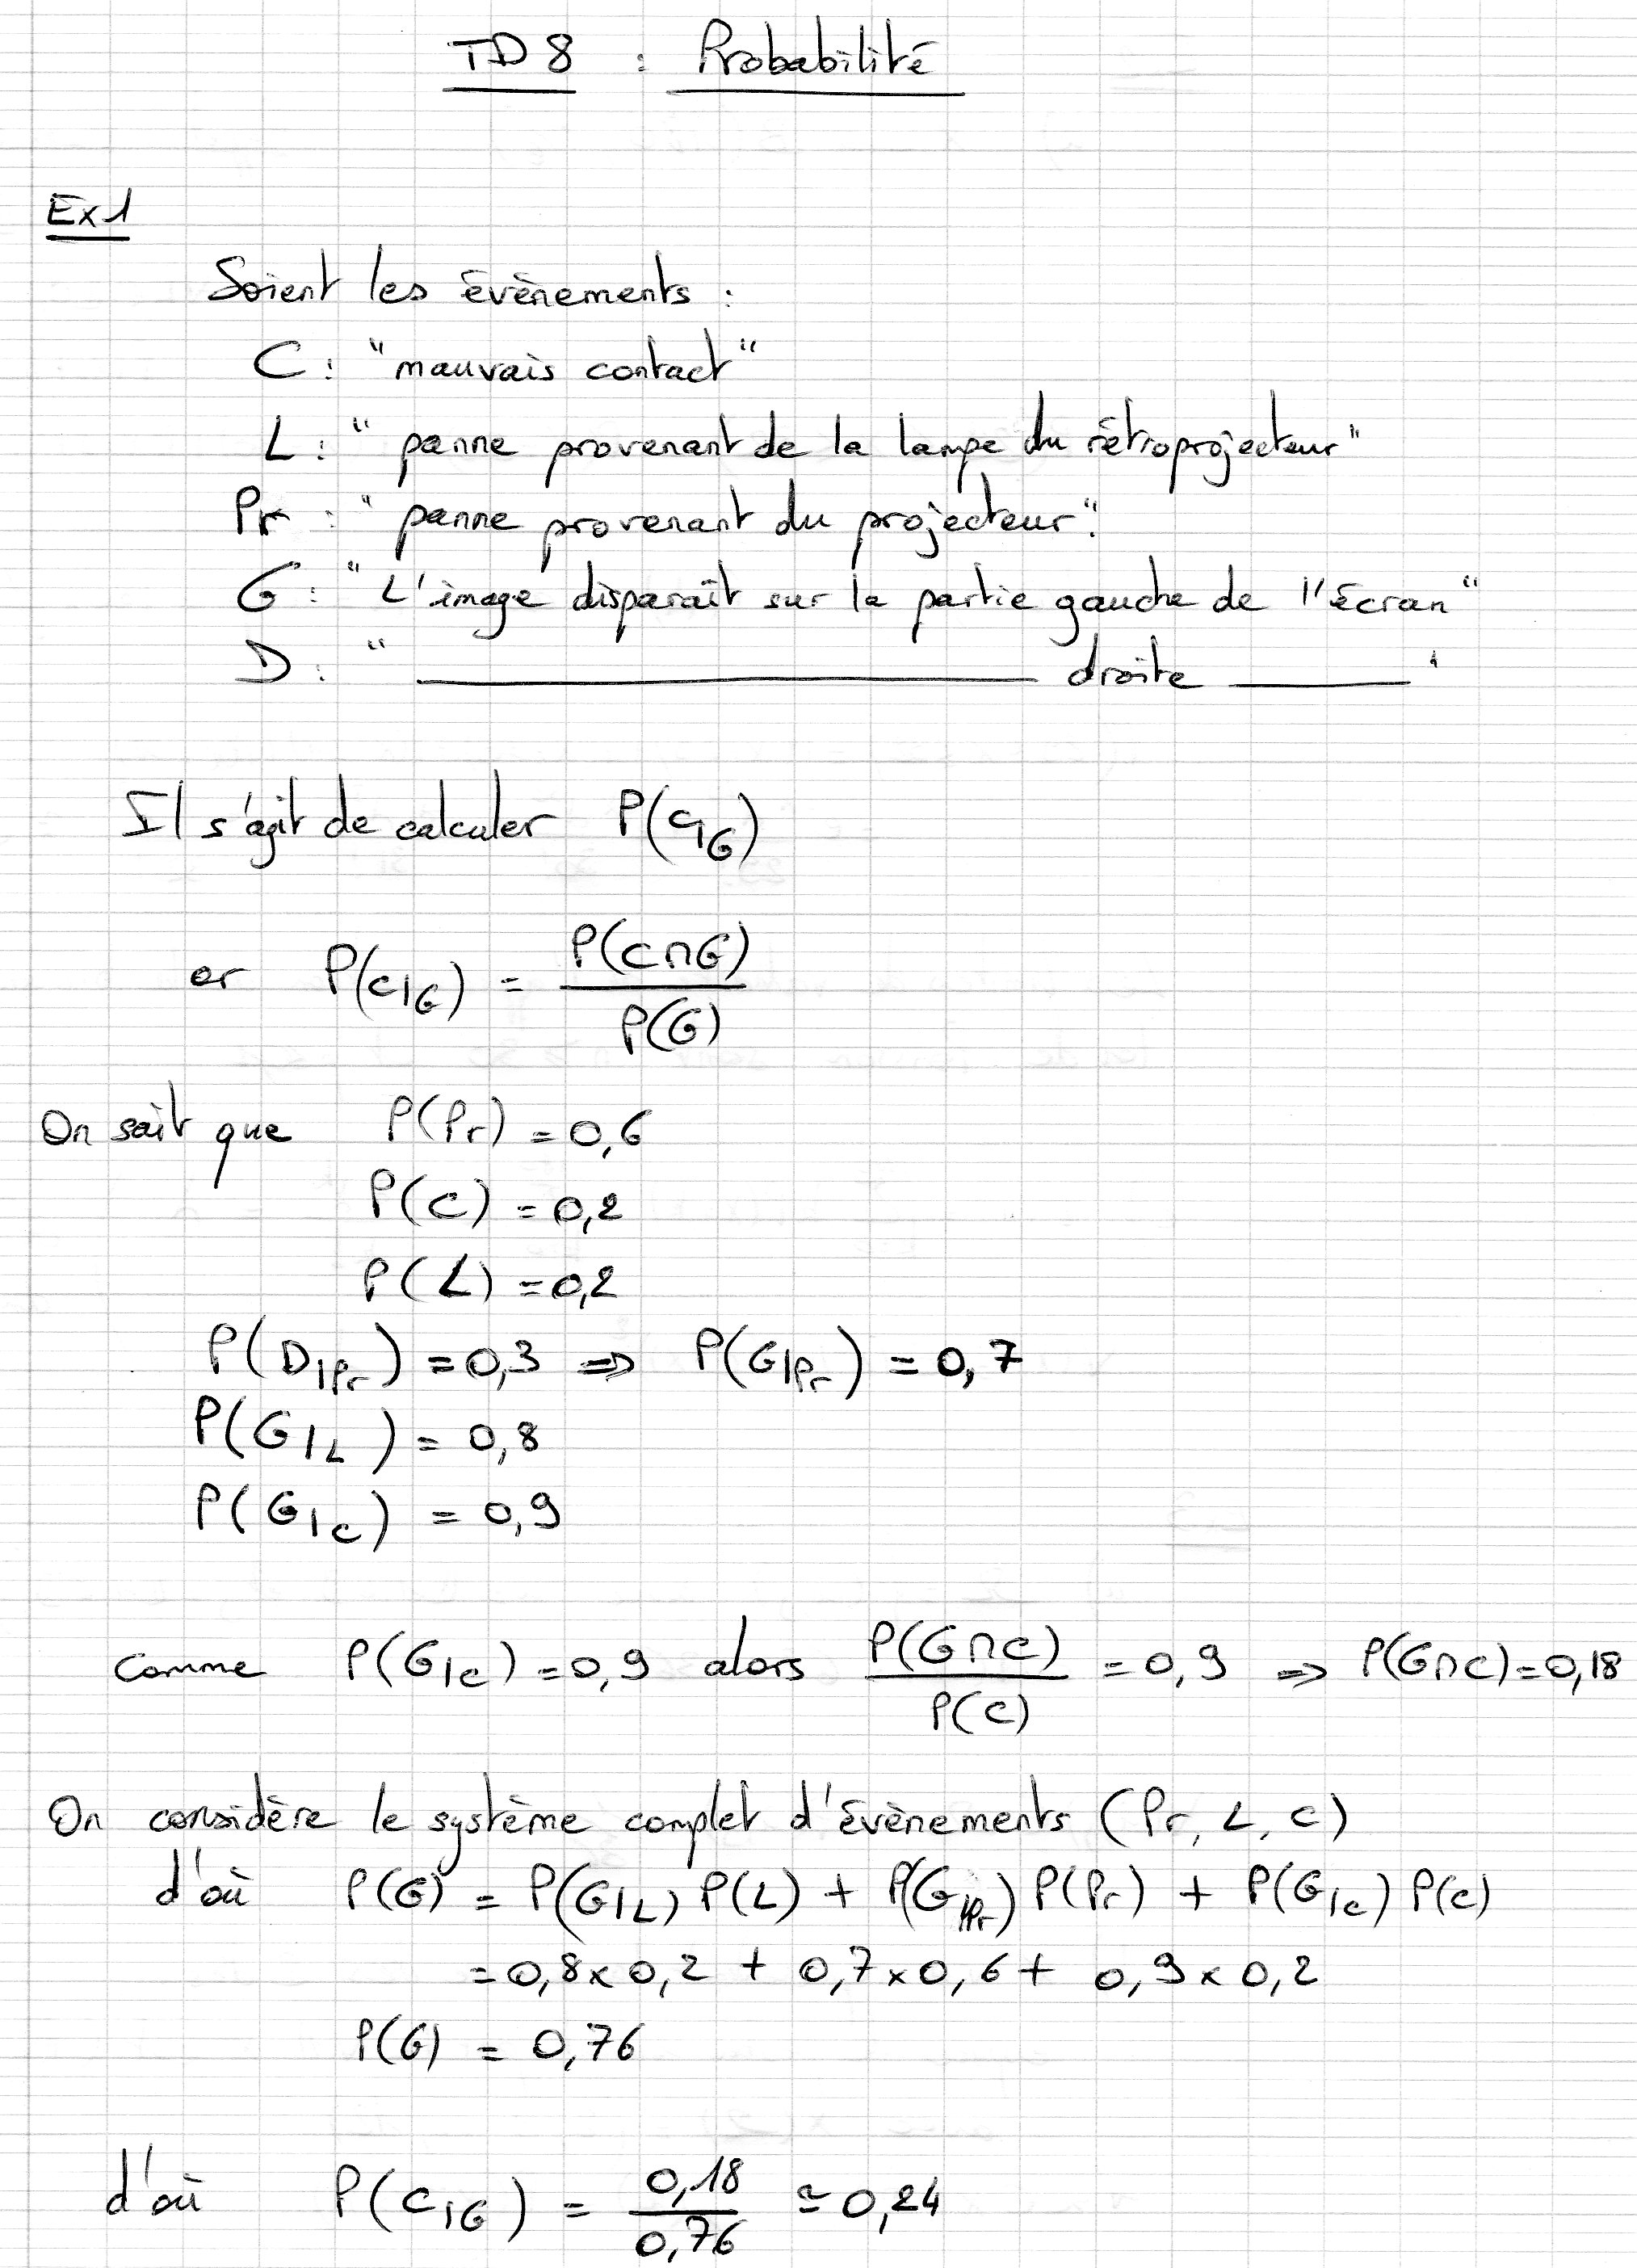 TD8 : Probabilité
Ex1
Soient les évènements :
C : "mauvais contact"
L : " panne provenant de la lampe du rétroprojecteur"
Pr : " panne provenant du projecteur".
G : " L'image disparaît sur la partie gauche de l'écran"
D : " ———————— droite ———"
Il s'agit de calculer P(C|G)
or P(C|G) = P(C∩G) / P(G)
On sait que P(Pr) = 0,6
P(C) = 0,2
P(L) = 0,2
P(D|Pr) = 0,3 => P(G|Pr) = 0,7
P(G|L) = 0,8
P(G|C) = 0,9
Comme P(G|C) = 0,9 alors P(G∩C) / P(C) = 0,9 => P(G∩C) = 0,18
On considère le système complet d'évènements (Pr, L, C)
d'où P(G) = P(G|L) P(L) + P(G|Pr) P(Pr) + P(G|C) P(C)
= 0,8 x 0,2 + 0,7 x 0,6 + 0,9 x 0,2
P(G) = 0,76
d'où P(C|G) = 0,18 / 0,76 ≃ 0,24